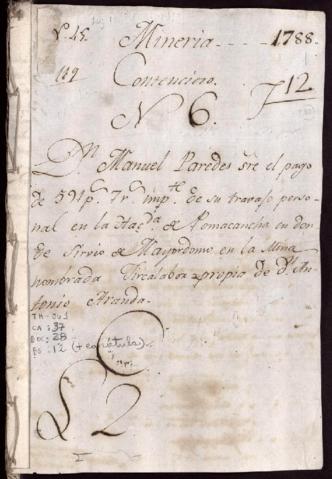 Nº. 45. Mineria - - - - 1788.
Contencioso. 12
N 6.
Dn. Manuel Paredes sre el pago
de 591 ps. 7 rs. impte. de su travajo perso-
nal en la Hacda. de Pomacancha en don
de Sirvio de Mayordomo en la Mina
nombrada propia de Dn. An-
tonio Aranda.
TM-Co1
CA: 37
DOC: 28
FS: 12 (+ carátula)
L 2